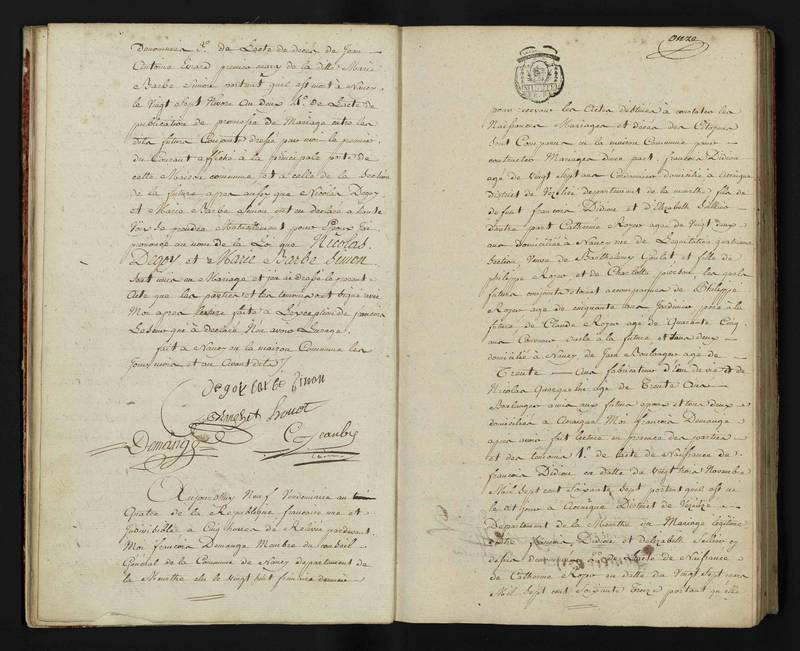 denommés 3.º de Lacte de deces de Jean
Antoine Evrard premier mary de la ditte Marie
Barbe Simon portant quil est mort à Nancy,
le Vingt Sept Nivose an deux 4.º de Lacte de
publication de promesse de Mariage entre les
dits futurs Conjoints dressé par moi le premier
du Courant affiché à la principale porte de
cette Maison commune et à celle de la Section
de la future apres aussy que Nicolas Degoy
et Marie Barbe Simon ont eu declaré à haute
Voix se prendre Mutuellement pour Epoux J'ai
prononcé au nom de la Loi que Nicolas
Degoy et Marie Barbe Simon
sont unis en Mariage et j'ai redigé le present
Acte que les parties et les temoins ont signé avec
Moi apres lecture faite à L'exception de
Lesueur qui à declaré Non avoir Lusage.
fait à Nancy en la maison Commune les
Jour mois et an avant dits
Degoix barbe Simon
houot
Demange Jeanbis
Aujourdhuy Neuf Vendemiaire an
Quatre de la Republique francaise une et
Indivisible à Cinq heures de Relevée pardevant
Moi francois Demange Membre du conseil
Général de la Commune de Nancy departement de
la Meurthe elu le vingt huit frimaire dernier
onze
pour recevoir les Actes destinés à constater les
Naissances Mariages et décés des Citoyens
Sont Comparus en la maison Commune pour
contracter Mariage dune part francois Didion
agé de vingt sept ans domicilié à
District de Vezelise departement de la meurthe fils de
defunt francois Didion et d'Elizabeth
Dautre part Catherine Royer agée de Vingt deux
ans domiciliée à Nancy rue de Lequitation quatrieme
Section Veuve de Barthelemy et fille de
philippe Royer et de Charlotte les quels
futurs conjoints etaient accompagnés de Philippe
Royer agé de cinquante ans Jardinier pere à la
future, de Claude Royer agé de Quarante Cinq
ans oncle à la future et tous deux
domiciliés à Nancy, de Jean Boulanger agé de
Trente ans fabricateur d'Eau de vie et de
Nicolas agé de Trente ans
Boulanger amis aux futurs epoux et tous deux
domiciliés à Moi francois Demange
apres avoir fait lecture en presence des parties
et des temoins 1.º de lacte de Naissance de
francois Didion en datte du Vingt trois Novembre
Mil Sept cent Soixante Sept portant quil est né
le dit jour à District de Vezelise
Departement de la Meurthe du Mariage légitime
dentre francois Didion et delizabeth
2.º de Lacte de Naissance
de Catherine Royer en datte du Vingt Sept mars
Mil Sept cent Soixante Treize portant qu'elle